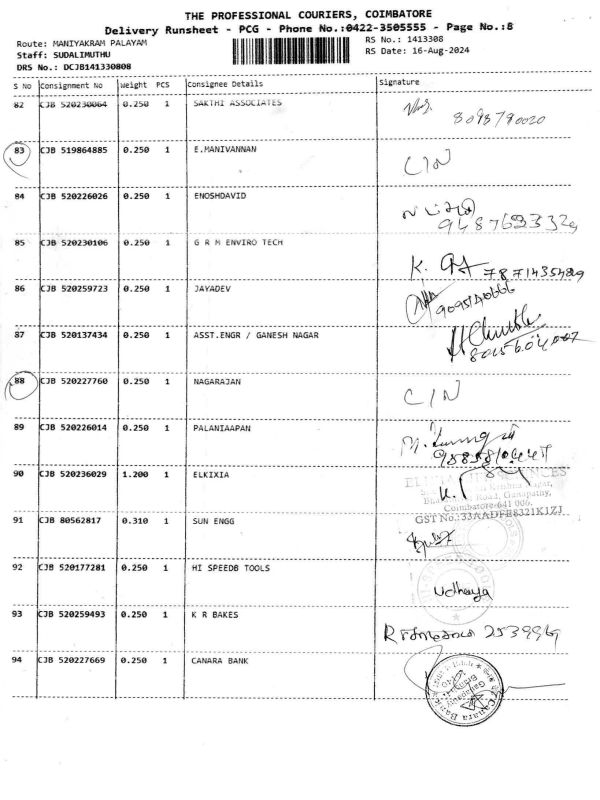 THE PROFESSIONAL COURIERS, COIMBATORE
Delivery Runsheet - PCG - Phone No.:0422-3505555 - Page No.:8
Route: MANIYAKRAM PALAYAM
RS No.: 1413308
Staff: SUDALIMUTHU
RS Date: 16-Aug-2024
DRS No.: DCJB141330808
S No Consignment No Weight PCS Consignee Details Signature
82 CJB 520230064 0.250 1 SAKTHI ASSOCIATES
8098790020
83 CJB 519864885 0.250 1 E.MANIVANNAN C/N
84 CJB 520226026 0.250 1 ENOSHDAVID
85 CJB 520230106 0.250 1 G R M ENVIRO TECH
K.
86 CJB 520259723 0.250 1 JAYADEV
87 CJB 520137434 0.250 1 ASST.ENGR / GANESH NAGAR
88 CJB 520227760 0.250 1 NAGARAJAN C/N
89 CJB 520226014 0.250 1 PALANIAAPAN
90 CJB 520236029 1.200 1 ELKIXIA
Krishna Nagar,
Road, Ganapathy,
Coimbatore-641 006.
GST No.:33AADFB8321K1ZJ
91 CJB 80562817 0.310 1 SUN ENGG
92 CJB 520177281 0.250 1 HI SPEEDB TOOLS
Udhaya
93 CJB 520259493 0.250 1 K R BAKES
94 CJB 520227669 0.250 1 CANARA BANK
Canara Bank